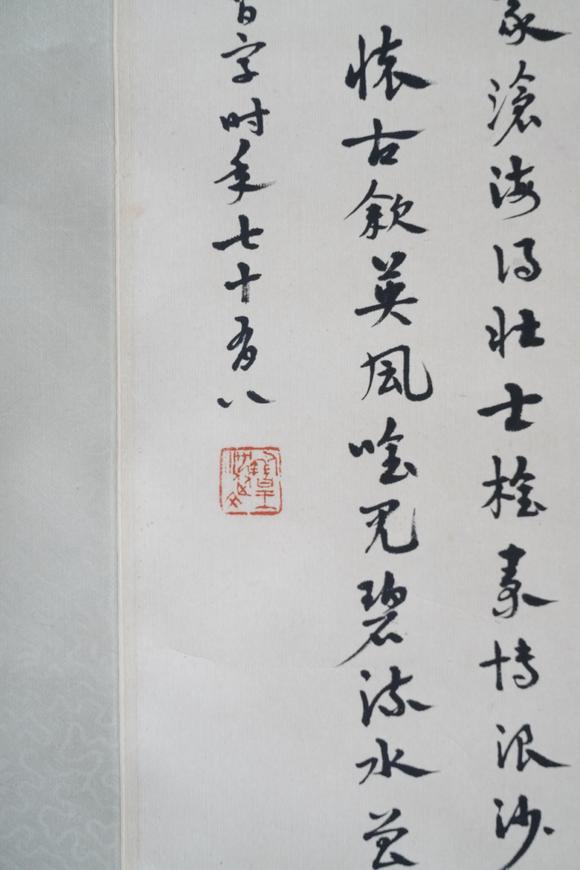 家滄海得壮士椎秦博浪沙
懷古欽英風唯見碧流水曾
百字时年七十有八